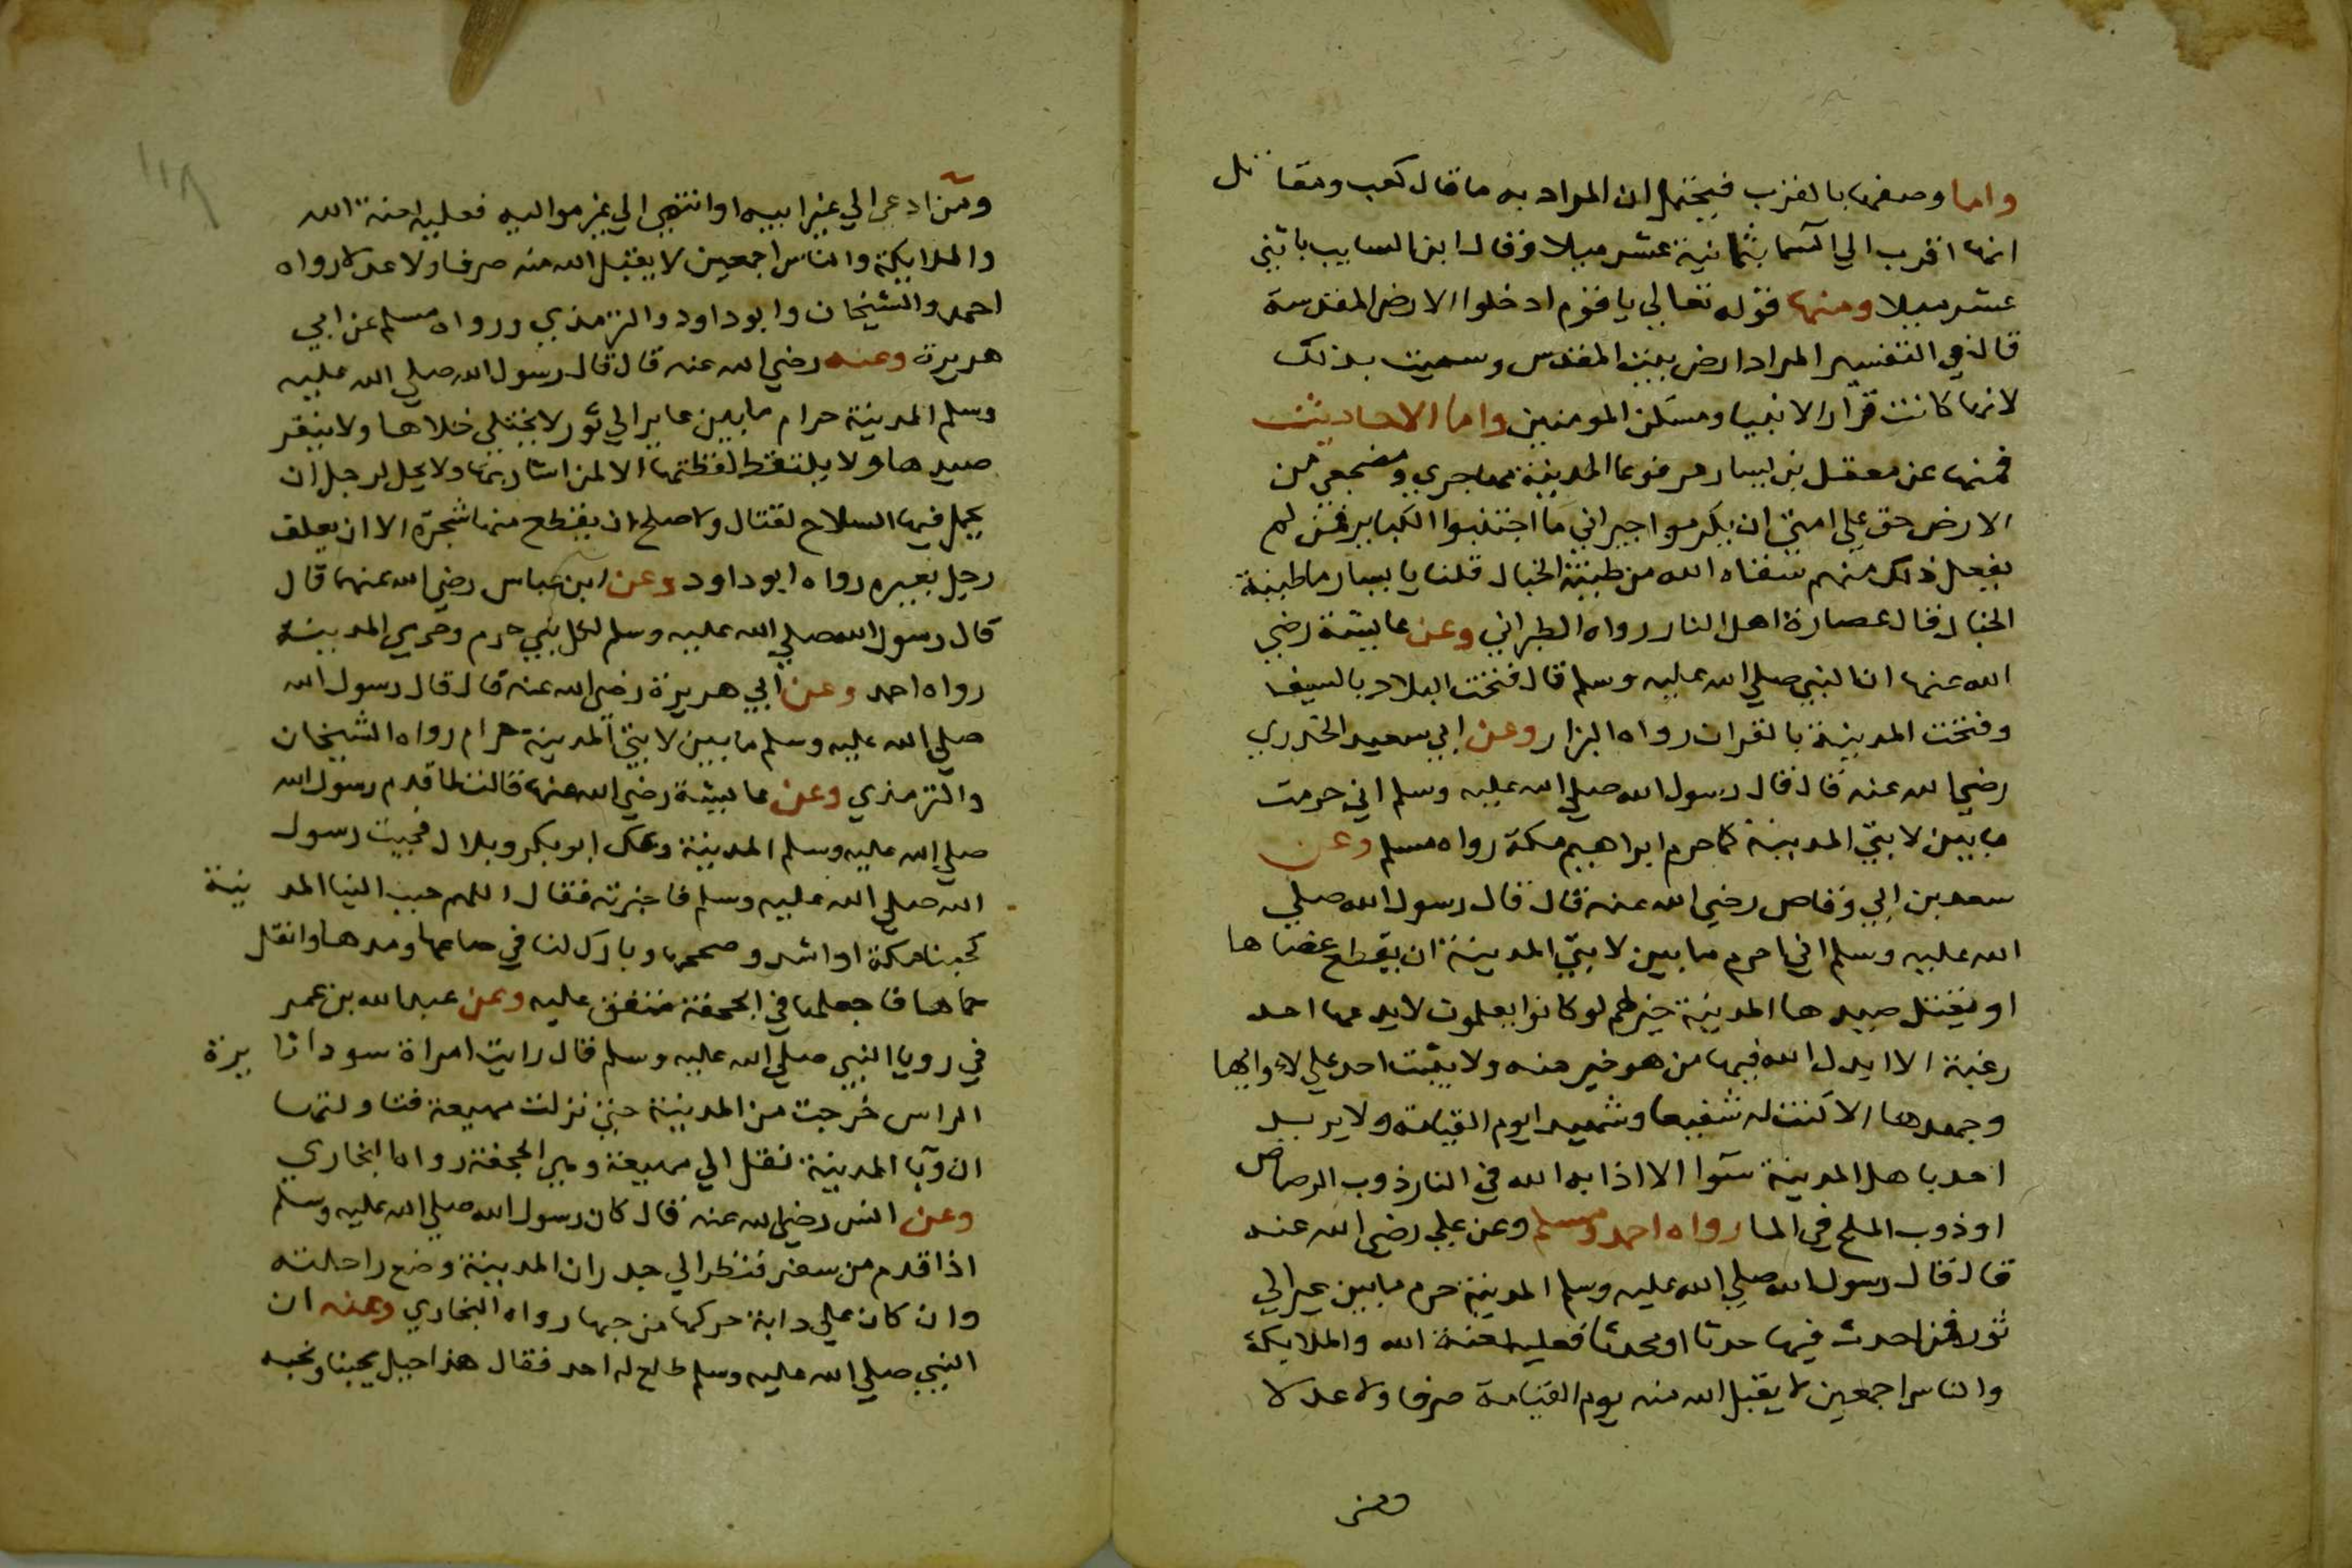 واما وصفها بالقرب فيحتمل ان المراد به ما قال كعب ومقاتل
انها اقرب الي السما بثمانية عشر ميلا وقال ابن السايب باثني
عشر ميلا ومنها قوله تعالي يا قوم ادخلوا الارض المقدسة
قال في التفسير المراد ارض بيت المقدس وسميت بذلك
لانها كانت قرار الانبيا ومسكن المومنين واما الاحاديث
فمنها عن معقل بن يسار مرفوعا المدينة مهاجري ومضجعي من
الارض حق علي امتي ان يكرموا جيراني ما اجتنبوا الكباير فمن لم
يفعل ذلك منهم سقاه الله من طينة الخبال قلنا يا يسار ما طينة
الخبال قال عصارة اهل النار رواه الطبراني وعن عايشة رضي
الله عنها ان النبي صلي الله عليه وسلم قال فتحت البلاد بالسيف
وفتحت المدينة بالقران رواه البزار وعن ابي سعيد الخدري
رضي الله عنه قال قال رسول الله صلي الله عليه وسلم اني حرمت
ما بين لابتي المدينة كما حرم ابراهيم مكة رواه مسلم وعن
سعد بن ابي وقاص رضي الله عنه قال قال رسول الله صلي
الله عليه وسلم اني احرم ما بين لابتي المدينة ان يقطع عضاها
او يقتل صيدها المدينة خير لهم لو كانوا يعلموت لا يدعها احد
رغبة الا ابدل الله فيها من هو خير منه ولا يثبت احد علي لاوايها
وجهدها الا كنت له شفيعا وشهيدا يوم القيامة ولا يريد
احد باهل المدينة سوا الا اذابه الله في النار ذوب الرصاص
او ذوب الملح في الما رواه احمد ومسلم وعن علي رضي الله عنه
قال قال رسول الله صلي الله عليه وسلم المدينة حرم ما بين عير الي
ثور فمن احدث فيها حدثا او محدثا فعليه لعنة الله والملايكة
والناس اجمعين لا يقبل الله منه يوم القيامة صرفا ولا عدلا
ومن
١١٨
ومن ادعي الي غير ابيه او انتهي الي غير مواليه فعليه لعنة الله
والملايكة والناس اجمعين لا يقبل الله منه صرفا ولا عدلا رواه
احمد والشيخان وابو داود والترمذي ورواه مسلم عن ابي
هريرة وعنه رضي الله عنه قال قال رسول الله صلي الله عليه
وسلم المدينة حرام ما بين عاير الي ثور لا يختلي خلاها ولا ينفر
صيدها ولا يلتقط لقطتها الا لمن اشاد بها ولا يحل لرجل ان
يحمل فيها السلاح لقتال ولا صلح ان يقطع منها شجرة الا ان يعلف
رجل بعيره رواه ابو داود وعن ابن عباس رضي الله عنهما قال
قال رسول الله صلي الله عليه وسلم لكل نبي حرم وحرمي المدينة
رواه احمد وعن ابي هريرة رضي الله عنه قال قال رسول الله
صلي الله عليه وسلم ما بين لابتي المدينة حرام رواه الشيخان
والترمذي وعن عايشة رضي الله عنها قالت لما قدم رسول الله
صلي الله عليه وسلم المدينة وعك ابو بكر وبلال فجيت رسول
الله صلي الله عليه وسلم فاخبرته فقال اللهم حبب الينا المدينة
كحبنا مكة او اشد وصححها وبارك لنا في صاعها ومدها وانقل
حماها فاجعلها في الجحفة متفق عليه وعن عبد الله بن عمر
في رويا النبي صلي الله عليه وسلم قال رايت امراة سودا ثايرة
الراس خرجت من المدينة حتي نزلت مهيعة فتاولتها
ان وبا المدينة نقل الي مهيعة وهي الجحفة رواه البخاري
وعن انس رضي الله عنه قال كان رسول الله صلي الله عليه وسلم
اذا قدم من سفر فنظر الي جدران المدينة وضع راحلته
وان كان علي دابة حركها من حبها رواه البخاري وعنه ان
النبي صلي الله عليه وسلم طلع له احد فقال هذا جبل يحبنا ونحبه